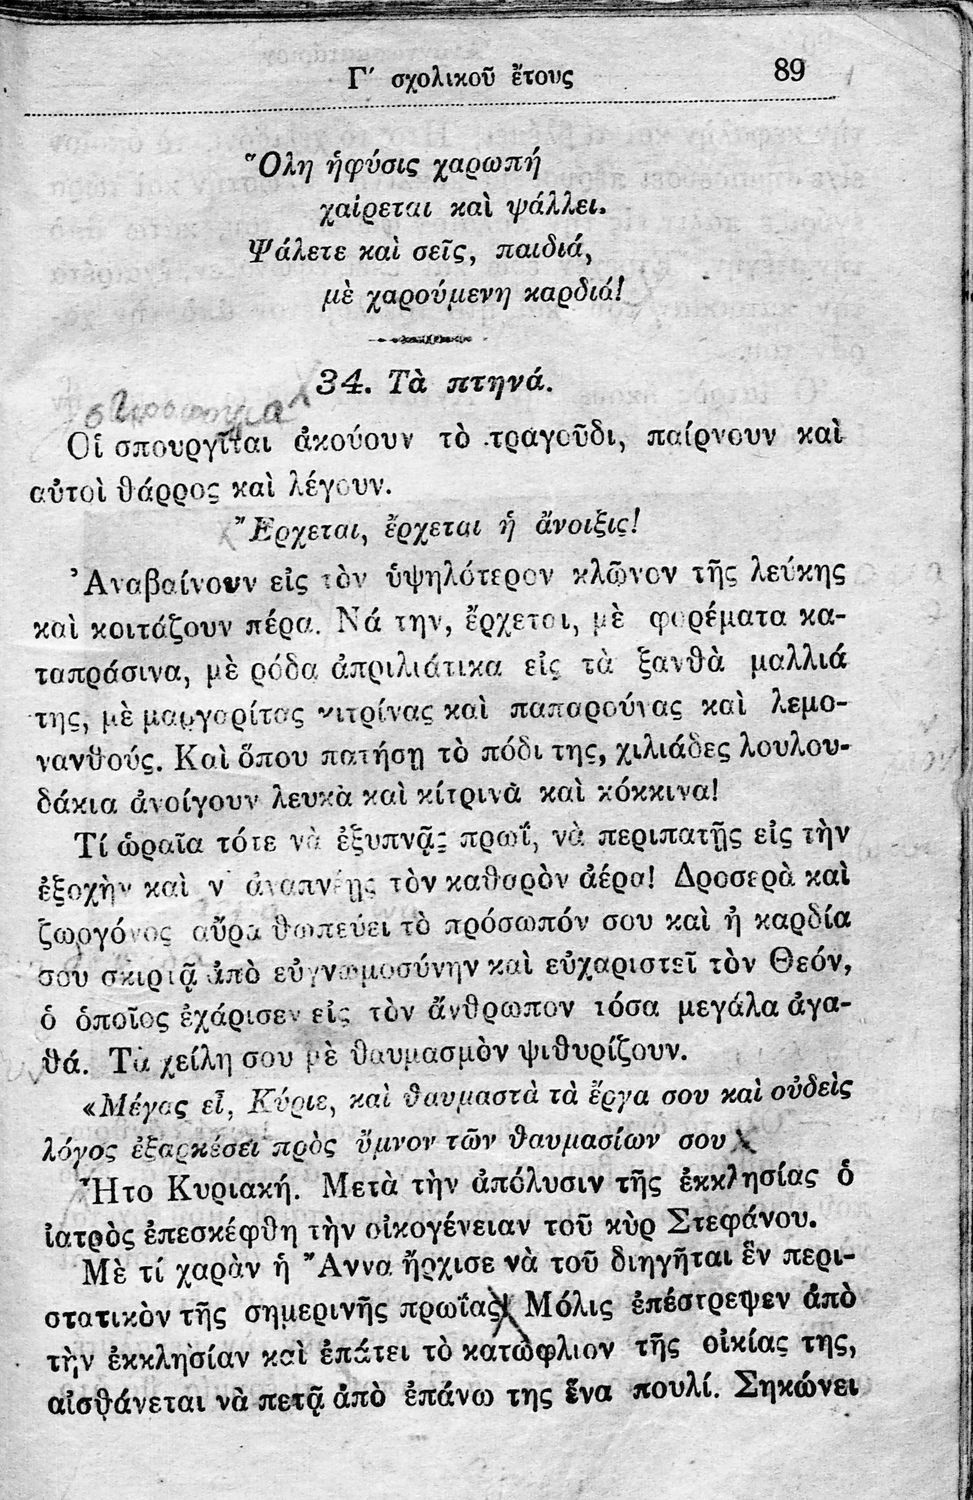 Γ′ σχολικοῦ ἔτους 89
Ὅλη ἡφύσις χαρωπή
χαίρεται καὶ ψάλλει.
Ψάλετε καὶ σεῖς, παιδιά,
μὲ χαρούμενη καρδιά!
34. Τὰ πτηνά.
Οἱ σπουργῖται ἀκούουν τὸ τραγοῦδι, παίρνουν καὶ
αὐτοὶ θάρρος καὶ λέγουν.
Ἔρχεται, ἔρχεται ἡ ἄνοιξις!
Ἀναβαίνουν εἰς τὸν ὑψηλότερον κλῶνον τῆς λεύκης
καὶ κοιτάζουν πέρα. Νά την, ἔρχεται, μὲ φορέματα κα-
ταπράσινα, μὲ ρόδα ἀπριλιάτικα εἰς τὰ ξανθὰ μαλλιά
της, μὲ μαργαρίτας κιτρίνας καὶ παπαρούνας καὶ λεμο-
νανθούς. Καὶ ὅπου πατήσῃ τὸ πόδι της, χιλιάδες λουλου-
δάκια ἀνοίγουν λευκὰ καὶ κίτρινὰ καὶ κόκκινα!
Τί ὡραῖα τότε νὰ ἐξυπνᾷς πρωΐ, νὰ περιπατῇς εἰς τὴν
ἐξοχὴν καὶ ν' ἀναπνέῃς τὸν καθαρὸν ἀέρα! Δροσερὰ καὶ
ζωργόνος αὔρα θωπεύει τὸ πρόσωπόν σου καὶ ἡ καρδία
σου σκιρτᾷ ἀπὸ εὐγνωμοσύνην καὶ εὐχαριστεῖ τὸν Θεόν,
ὁ ὁποῖος ἐχάρισεν εἰς τὸν ἄνθρωπον τόσα μεγάλα ἀγα-
θά. Τὰ χείλη σου μὲ θαυμασμὸν ψιθυρίζουν.
«Μέγας εἶ, Κύριε, καὶ θαυμαστὰ τὰ ἔργα σου καὶ οὐδεὶς
λόγος ἐξαρκέσει πρὸς ὕμνον τῶν θαυμασίων σου
Ἦτο Κυριακή. Μετὰ τὴν ἀπόλυσιν τῆς ἐκκλησίας ὁ
ἰατρὸς ἐπεσκέφθη τὴν οἰκογένειαν τοῦ κὺρ Στεφάνου.
Μὲ τί χαρὰν ἡ Ἄννα ἤρχισε νὰ τοῦ διηγῆται ἓν περι-
στατικὸν τῆς σημερινῆς πρωΐας! Μόλις ἐπέστρεψεν ἀπὸ
τὴν ἐκκλησίαν καὶ ἐπάτει τὸ κατώφλιον τῆς οἰκίας της,
αἰσθάνεται νὰ πετᾷ ἀπὸ ἐπάνω της ἕνα πουλί. Σηκώνει